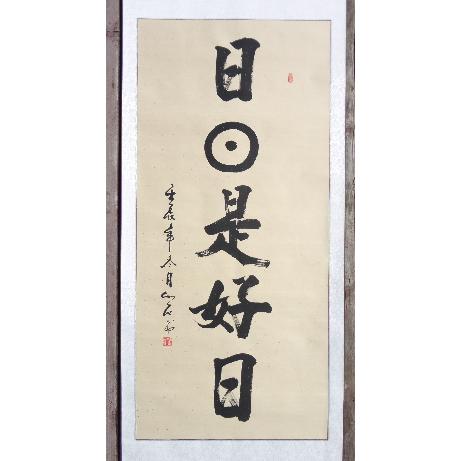 日☉是好日
壬辰年冬月